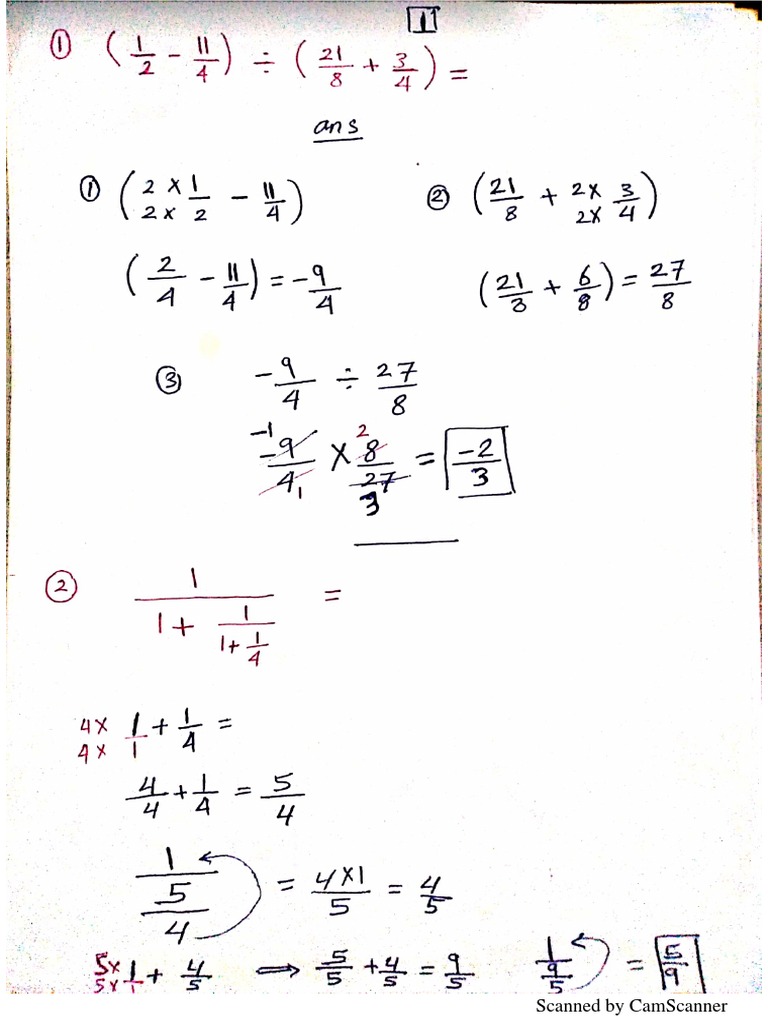 1
① (1/2 - 11/4) ÷ (21/8 + 3/4) =
ans
① (2 × 1 / 2 × 2 - 11/4) ② (21/8 + 2 × 3 / 2 × 4)
(2/4 - 11/4) = -9/4 (21/3 + 6/8) = 27/8
③ -9/4 ÷ 27/8
-1 2
-9/4 × 8/27 = -2/3
1 3
② 1/(1 + 1/(1 + 1/4)) =
4 × 1 / 4 × 1 + 1/4 =
4/4 + 1/4 = 5/4
1/(5/4) = 4×1/5 = 4/5
5 × 1 / 5 × 1 + 4/5 ⟹ 5/5 + 4/5 = 9/5 1/(9/5) = 5/9
Scanned by CamScanner